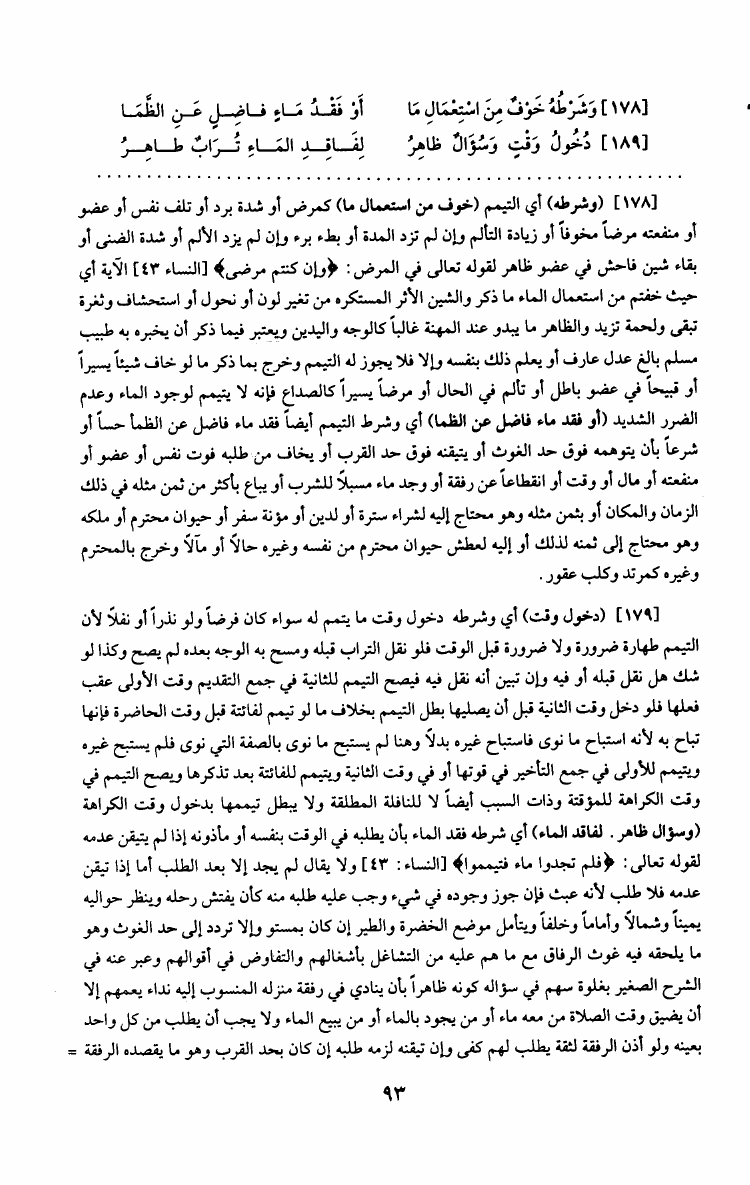 [١٧٨] وَشَرْطُهُ خَوْفٌ مِنَ اسْتِعْمَالِ مَا أَوْ فَقْدُ مَـاءٍ فـاضِـلٍ عَـنِ الظَّمَـا
[١٨٩] دُخُولُ وَقْتٍ وَسُؤَالٌ ظاهِرُ لِفَـاقِـدِ المَـاءِ تُـرَابٌ طـاهِـرُ
[١٧٨] (وشرطه) أي التيمم (خوف من استعمال ما) كمرض أو شدة برد أو تلف نفس أو عضو
أو منفعته مرضاً مخوفاً أو زيادة التألم وإن لم تزد المدة أو بطء برء وإن لم يزد الألم أو شدة الضنى أو
بقاء شين فاحش في عضو ظاهر لقوله تعالى في المرض: ﴿وإن كنتم مرضى﴾ [النساء ٤٣] الآية أي
حيث خفتم من استعمال الماء ما ذكر والشين الأثر المستكره من تغير لون أو نحول أو استحشاف وثغرة
تبقى ولحمة تزيد والظاهر ما يبدو عند المهنة غالباً كالوجه واليدين ويعتبر فيما ذكر أن يخبره به طبيب
مسلم بالغ عدل عارف أو يعلم ذلك بنفسه وإلا فلا يجوز له التيمم وخرج بما ذكر ما لو خاف شيئاً يسيراً
أو قبيحاً في عضو باطل أو تألم في الحال أو مرضاً يسيراً كالصداع فإنه لا يتيمم لوجود الماء وعدم
الضرر الشديد (أو فقد ماء فاضل عن الظما) أي وشرط التيمم أيضاً فقد ماء فاضل عن الظمأ حساً أو
شرعاً بأن يتوهمه فوق حد الغوث أو يتيقنه فوق حد القرب أو يخاف من طلبه فوت نفس أو عضو أو
منفعته أو مال أو وقت أو انقطاعاً عن رفقة أو وجد ماء مسبلاً للشرب أو يباع بأكثر من ثمن مثله في ذلك
الزمان والمكان أو بثمن مثله وهو محتاج إليه لشراء سترة أو لدين أو مؤنة سفر أو حيوان محترم أو ملكه
وهو محتاج إلى ثمنه لذلك أو إليه لعطش حيوان محترم من نفسه وغيره حالاً أو مآلاً وخرج بالمحترم
وغيره كمرتد وكلب عقور.
[١٧٩] (دخول وقت) أي وشرطه دخول وقت ما يتمم له سواء كان فرضاً ولو نذراً أو نفلاً لأن
التيمم طهارة ضرورة ولا ضرورة قبل الوقت فلو نقل التراب قبله ومسح به الوجه بعده لم يصح وكذا لو
شك هل نقل قبله أو فيه وإن تبين أنه نقل فيه فيصح التيمم للثانية في جمع التقديم وقت الأولى عقب
فعلها فلو دخل وقت الثانية قبل أن يصليها بطل التيمم بخلاف ما لو تيمم لفائتة قبل وقت الحاضرة فإنها
تباح به لأنه استباح ما نوى فاستباح غيره بدلاً وهنا لم يستبح ما نوى بالصفة التي نوى فلم يستبح غيره
ويتيمم للأولى في جمع التأخير في قوتها أو في وقت الثانية ويتيمم للفائتة بعد تذكرها ويصح التيمم في
وقت الكراهة للمؤقتة وذات السبب أيضاً لا للنافلة المطلقة ولا يبطل تيممها بدخول وقت الكراهة
(وسؤال ظاهر. لفاقد الماء) أي شرطه فقد الماء بأن يطلبه في الوقت بنفسه أو مأذونه إذا لم يتيقن عدمه
لقوله تعالى: ﴿فلم تجدوا ماء فتيمموا﴾ [النساء: ٤٣] ولا يقال لم يجد إلا بعد الطلب أما إذا تيقن
عدمه فلا طلب لأنه عبث فإن جوز وجوده في شيء وجب عليه طلبه منه كأن يفتش رحله وينظر حواليه
يميناً وشمالاً وأماماً وخلفاً ويتأمل موضع الخضرة والطير إن كان بمستو وإلا تردد إلى حد الغوث وهو
ما يلحقه فيه غوث الرفاق مع ما هم عليه من التشاغل بأشغالهم والتفاوض في أقوالهم وعبر عنه في
الشرح الصغير بغلوة سهم في سؤاله كونه ظاهراً بأن ينادي في رفقة منزله المنسوب إليه نداء يعمهم إلا
أن يضيق وقت الصلاة من معه ماء أو من يجود بالماء أو من يبيع الماء ولا يجب أن يطلب من كل واحد
بعينه ولو أذن الرفقة لثقة يطلب لهم كفى وإن تيقنه لزمه طلبه إن كان بحد القرب وهو ما يقصده الرفقة =
٩٣